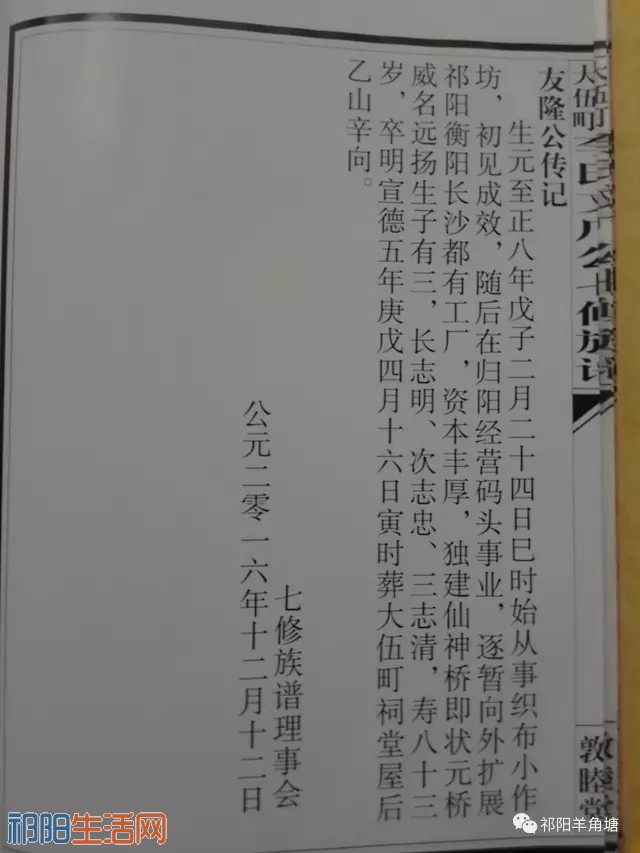 友隆公传记
生元至正八年戊子二月二十四日巳时始从事织布小作
坊，初见成效，随后在归阳经营码头事业，逐暂向外扩展
祁阳衡阳长沙都有工厂，资本丰厚，独建仙神桥即状元桥
威名远扬生子有三，长志明、次志忠、三志清，寿八十三
岁，卒明宣德五年庚戊四月十六日寅时葬大伍町祠堂屋后
乙山辛向。
七修族谱理事会
公元二零一六年十二月十二日
敦睦堂
祁阳生活网
祁阳羊角塘